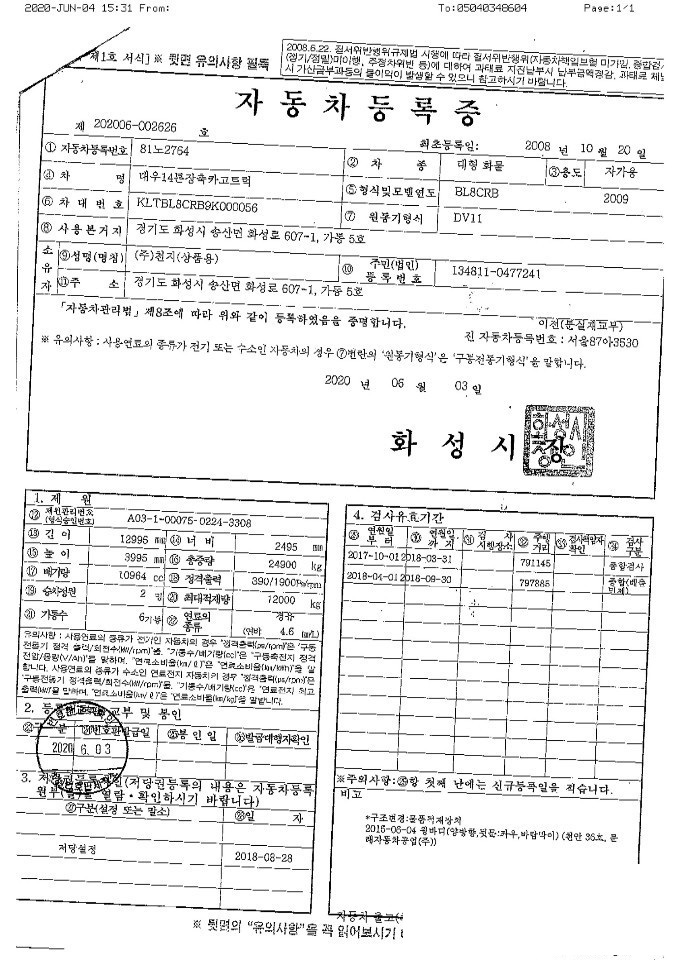 2020-JUN-04 15:31 From: To:05040348604 Page:1/1
제1호 서식] ※ 뒷면 유의사항 필독
2008.6.22. 질서위반행위규제법 시행에 따라 질서위반행위(자동차책임보험 미가입, 종합검사
(정기/정밀)미이행, 주정차위반 등)에 대하여 과태료 자진납부시 납부금액경감, 과태료 체납
시 가산금부과등의 불이익이 발생할 수 있으니 참고하시기 바랍니다.
자동차등록증
제 202006-002626 호
최초등록일: 2008 년 10 월 20 일
① 자동차등록번호 81노2764 ② 차 종 대형 화물 ③용도 자가용
④ 차 명 대우14톤장축카고트럭 ⑤ 형식및모델연도 BL8CRB 2009
⑥ 차대번호 KLTBL8CRB9K000056 ⑦ 원동기형식 DV11
⑧ 사용본거지 경기도 화성시 송산면 화성로 607-1, 가동 5호
소유자 ⑨성명(명칭) (주)천지(상품용) ⑩ 주민(법인)등록번호 134811-0477241
⑪주 소 경기도 화성시 송산면 화성로 607-1, 가동 5호
「자동차관리법」 제8조에 따라 위와 같이 등록하였음을 증명합니다.
이전(분실재교부)
전 자동차등록번호 : 서울87아3530
※ 유의사항 : 사용연료의 종류가 전기 또는 수소인 자동차의 경우 ⑦번란의 '원동기형식'은 '구동전동기형식'을 말합니다.
2020 년 06 월 03 일
화성시장
1. 제 원
⑫ 제원관리번호(형식승인번호) A03-1-00075-0224-3308
⑬ 길이 12996 mm ⑭ 너비 2495 mm
⑮ 높이 3995 mm ⑯ 총중량 24900 kg
⑰ 배기량 10964 cc ⑱ 정격출력 390/1900 Ps/rpm
⑲ 승차정원 2 명 ⑳ 최대적재량 12000 kg
㉑ 기통수 6기통 ㉒ 연료의 종류 경유 (연비 4.6 ㎞/L)
유의사항 : 사용연료의 종류가 전기인 자동차의 경우 "정격출력(ps/rpm)"은 "구동
전동기 정격 출력/회전수(kW/rpm)"를, "기통수/배기량(cc)"은 "구동축전지 정격
전압/용량(V/Ah)"를 말하며, "연료소비율(km/ℓ)"은 "연료소비율(km/kWh)"을 말
합니다. 사용연료의 종류가 수소인 연료전지 자동차의 경우 "정격출력(ps/rpm)"은
"구동전동기 정격출력/회전수(kW/rpm)"를, "기통수/배기량(cc)"은 "연료전지 최고
출력(kW)"을 말하며, "연료소비율(km/ℓ)"은 "연료소비율(km/kg)"을 말합니다.
2. 등록번호판 교부 및 봉인
구 분 번호판발급일 봉인일 발급대행자확인
2020 6. 03
3. 저당권등록사실(저당권등록의 내용은 자동차등록
원부(을)를 열람·확인하시기 바랍니다)
구분(설정 또는 말소) 일 자
저당설정 2018-08-28
4. 검사유효기간
연월일부터 연월일까지 검사시행장소 주행거리 검사책임자확인 검사구분
2017-10-01 2018-03-31 791145 종합검사
2018-04-01 2018-09-30 797885
※주의사항:㉙항 첫째 난에는 신규등록일을 적습니다.
비고
*구조변경:물품적재장치
※ 뒷면의 "유의사항"을 꼭 읽어보시기